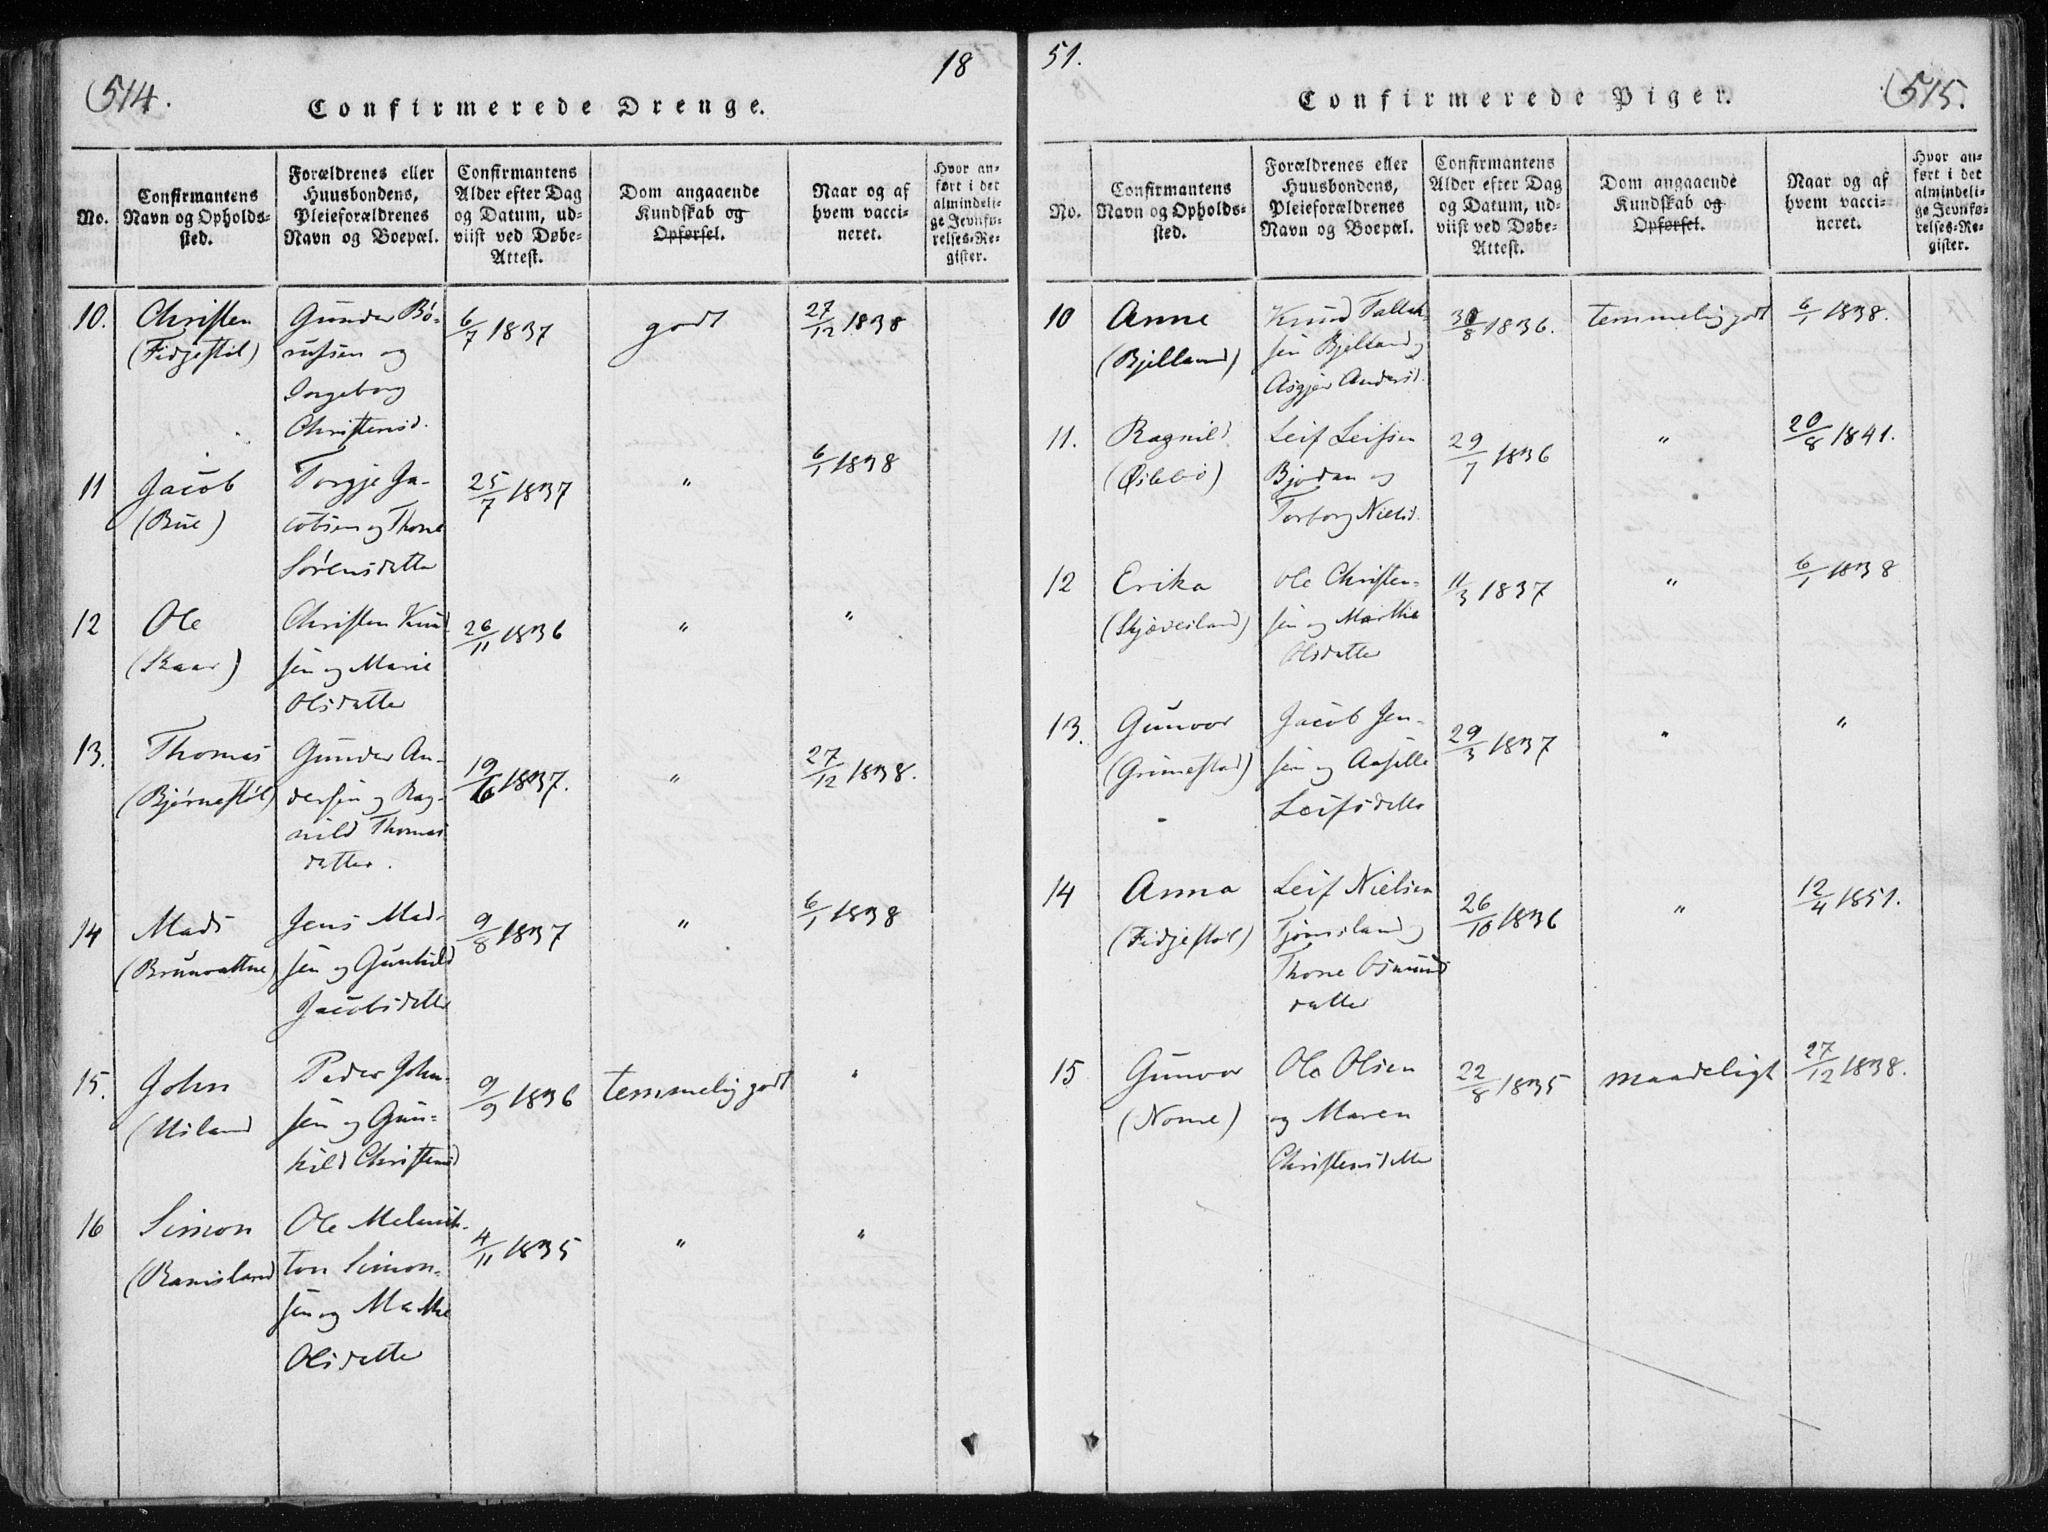 514.
18
Confirmerede Drenge.
No.
Confirmantens
Navn og Opholds-
sted.
Forældrenes eller
Huusbondens,
Pleieforældrenes
Navn og Boepæl.
Confirmantens
Alder efter Dag
og Datum, ud-
viist ved Døbe-
Attest.
Dom angaaende
Kundskab og
Opførsel.
Naar og af
hvem vacci-
neret.
Hvor an-
ført i det
almindeli-
ge Jevnfø-
relses-Re-
gister.
10.
Christen
(Fidjestøl)
Gunder Bø-
rufsen og
Ingeborg
Christensd.
6/7 1837
godt
27/12 1838
11
Jacob
(Bue)
Torgje Ja-
cobsen og Thone
Sørensdatter
25/7 1837
"
6/1 1838
12
Ole
(Skaar)
Christen Knud
sen og Marie
Olsdatter
26/11 1836
"
"
13.
Thomas
(Bjørnestøl)
Gunder An-
dersen og Rag-
nild Thomas
datter.
19/6 1837.
"
27/12 1838.
14
Mads
(Brunvattne)
Jens Mad-
sen og Gunhild
Jacobsdatter
9/8 1837
"
6/1 1838
15.
John
(Usland
Peder John-
sen og Gun-
hild Christensd
9/9 1836
temmelig godt
"
16
Simon
(Ramsland
Ole
ton Simon-
sen og Mathe
Olsdatter
4/11 1835
"
"
51.
515.
Confirmerede Piger.
No.
Confirmantens
Navn og Opholds-
sted.
Forældrenes eller
Huusbondens,
Pleieforældrenes
Navn og Boepæl.
Confirmantens
Alder efter Dag
og Datum, ud-
viist ved Døbe-
Attest.
Dom angaaende
Kundskab og
Opførsel.
Naar og af
hvem vacci-
neret.
Hvor an-
ført i det
almindeli-
ge Jevnfø-
relses-Re-
gister.
10
Anne
(Bjelland)
Knud Tallak-
sen Bjelland og
Asgjer Andersd.
30/8 1836.
temmelig godt
6/1 1838.
11.
Ragnild
(Øslebø)
Leif Leifsen
Bjodan og
Torborg Nielsd.
29/7 1836
"
20/8 1841.
12
Erika
(Skjæveiland)
Ole Christen-
sen og Marthe
Olsdatter
11/3 1837
"
6/1 1838
13.
Gunvor
(Grimestad)
Jacob Jen-
sen og Aasille
Leifsdatter
29/3 1837
"
"
14
Anna
(Fidjestøl)
Leif Nielsen
Tjomsland og
Thone Osmund
datter
26/10 1836
"
12/4 1851.
15
Gunvor
(Nome)
Ole Olsen
og Maren
Christensdatter
22/8 1835
maadeligt
27/12 1838.